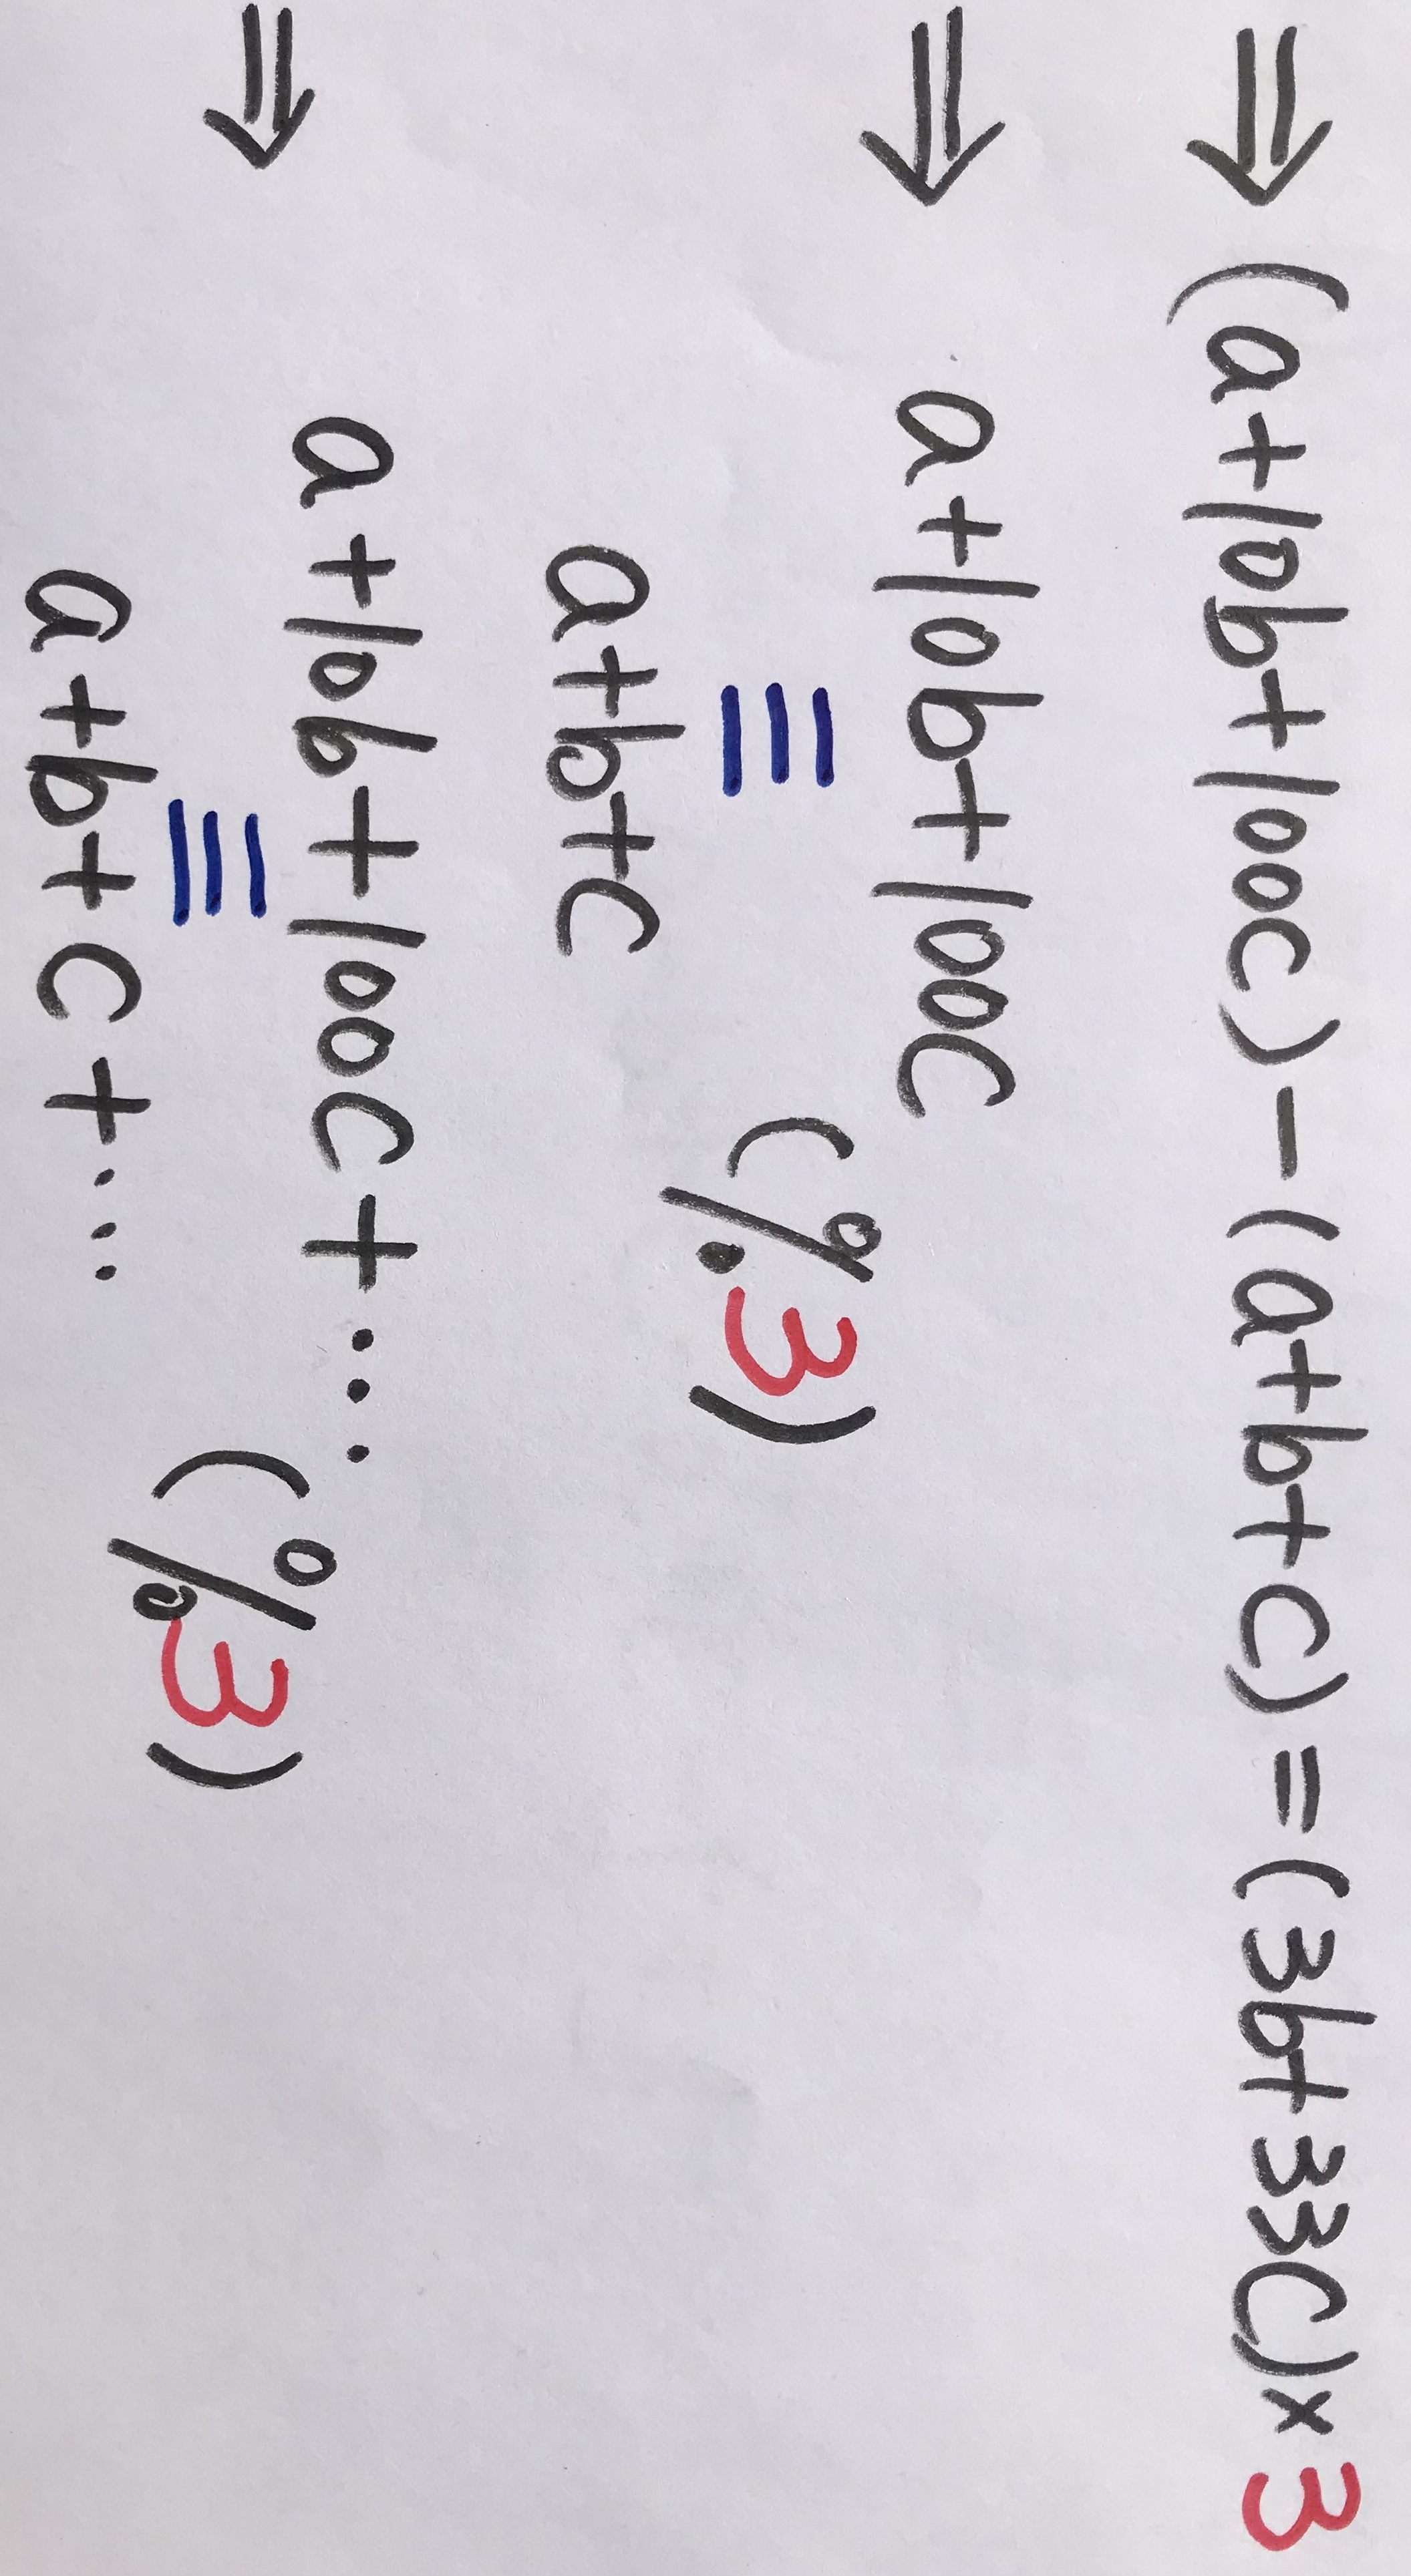 ⇒ (a+10b+100c)-(a+b+c)=(3b+33c)×3
⇒ a+10b+100c
≡ (%3)
a+b+c
a+10b+100c+···
⇒ ≡ (%3)
a+b+c+···